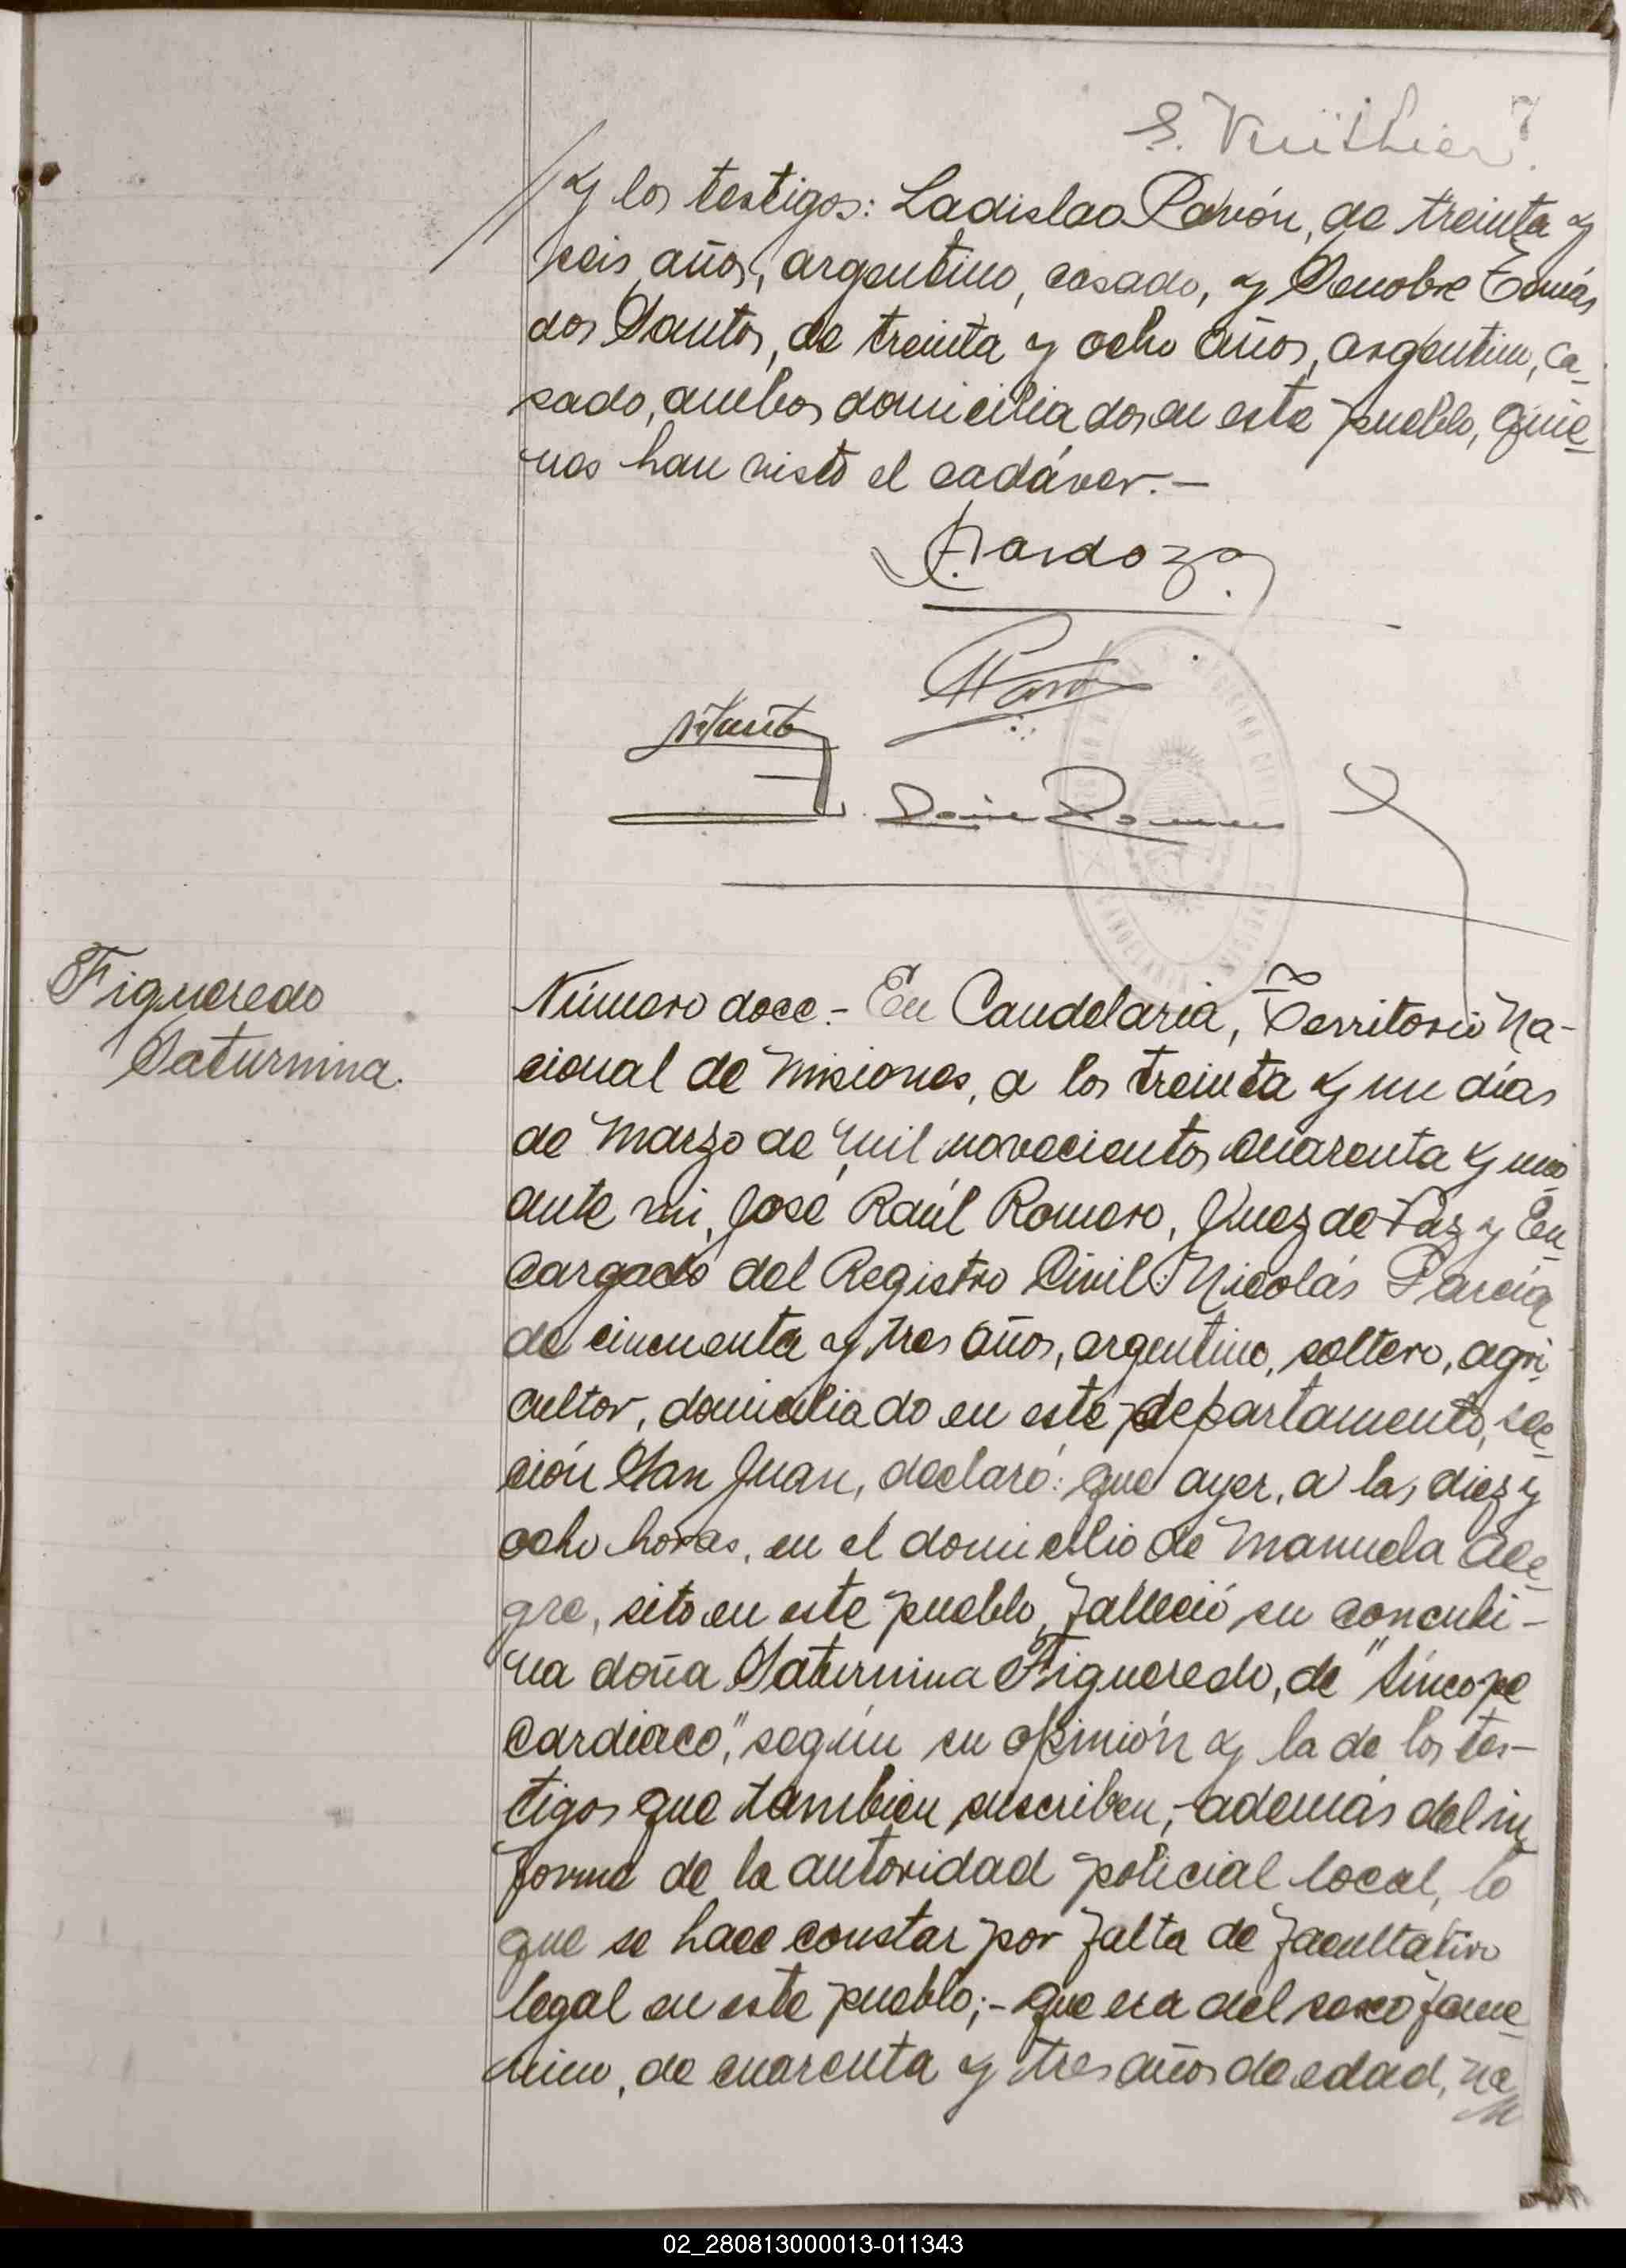 7
// y los testigos: Ladislao Pavón, de treinta y
seis años, argentino, casado, y Tomás
dos Santos, de treinta y ocho años, argentino, ca-
sado, ambos domiciliados en este pueblo, quie-
nes han visto el cadáver.-
Cardozo
Figueredo
Saturnina.
Número doce.- En Candelaria, Territorio Na-
cional de Misiones, a los treinta y un días
de Marzo de mil novecientos cuarenta y uno
ante mi, José Raúl Romero, Juez de Paz y En-
cargado del Registro Civil: Nicolás García
de cincuenta y tres años, argentino, soltero, agri-
cultor, domiciliado en este departamento, sec-
ción San Juan, declaró: que ayer, a las diez y
ocho horas, en el domicilio de Manuela Ale-
gre, sito en este pueblo, falleció su concubi-
na doña Saturnina Figueredo, de "síncope
cardiaco," según su opinión y la de los tes-
tigos que tambien suscriben; además del in-
forme de la autoridad policial local, lo
que se hace constar por falta de facultativo
legal en este pueblo;- que era del sexo feme-
nino, de cuarenta y tres años de edad, na
//
02_280813000013-011343